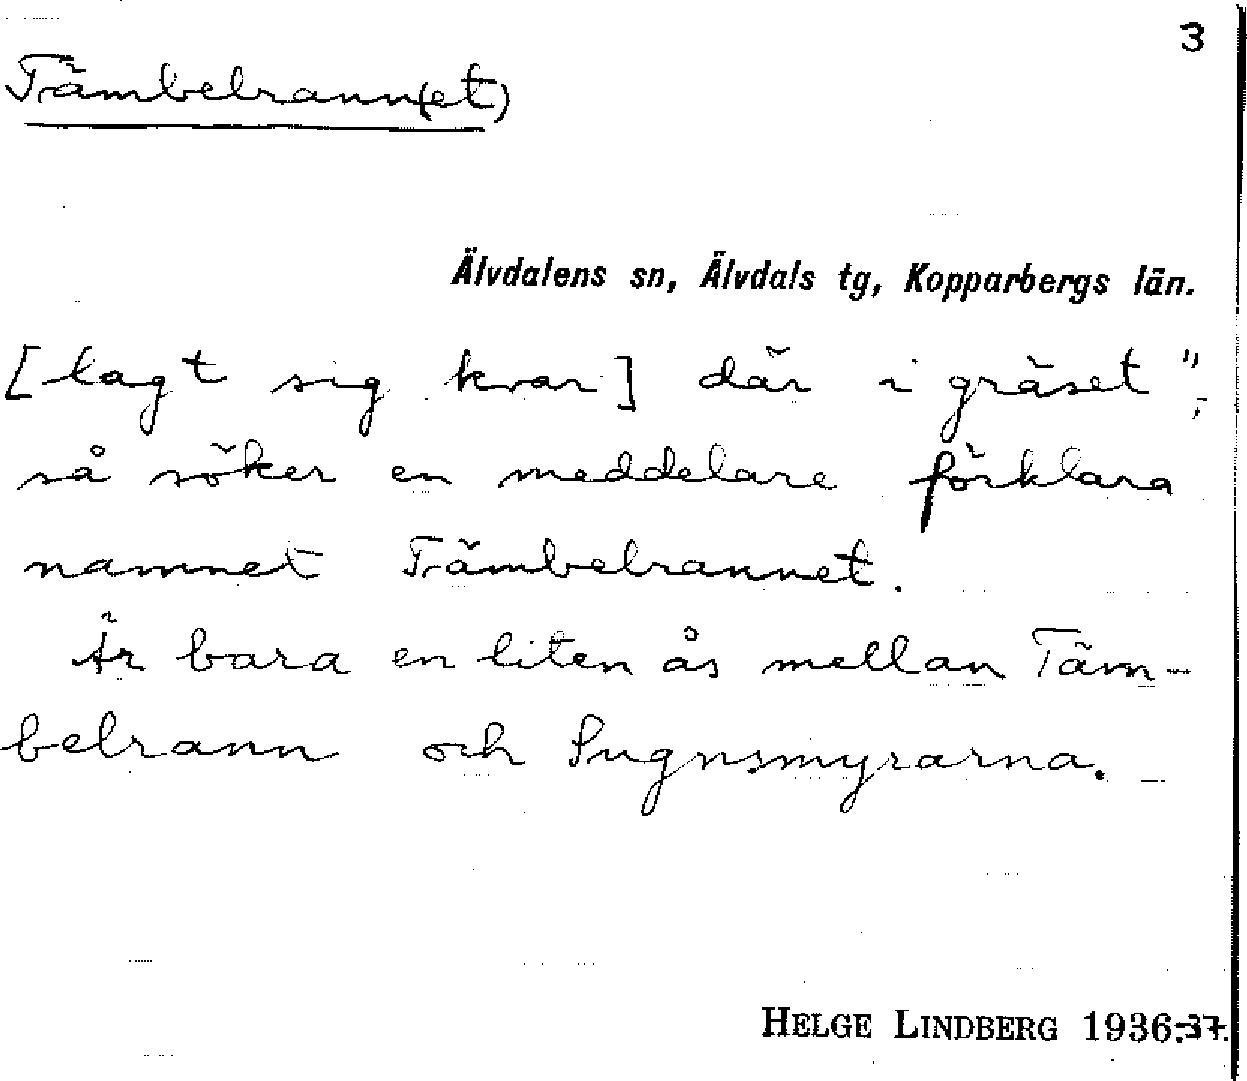 3
Tämbelrann(et)
Älvdalens sn, Älvdals tg, Kopparbergs län.
[lagt sig kvar] där i gräset";
så söker en meddelare förklara
namnet Tämbelrannet.
Är bara en liten ås mellan Täm-
belrann och Sugnsmyrarna. –
HELGE LINDBERG 1936-37.